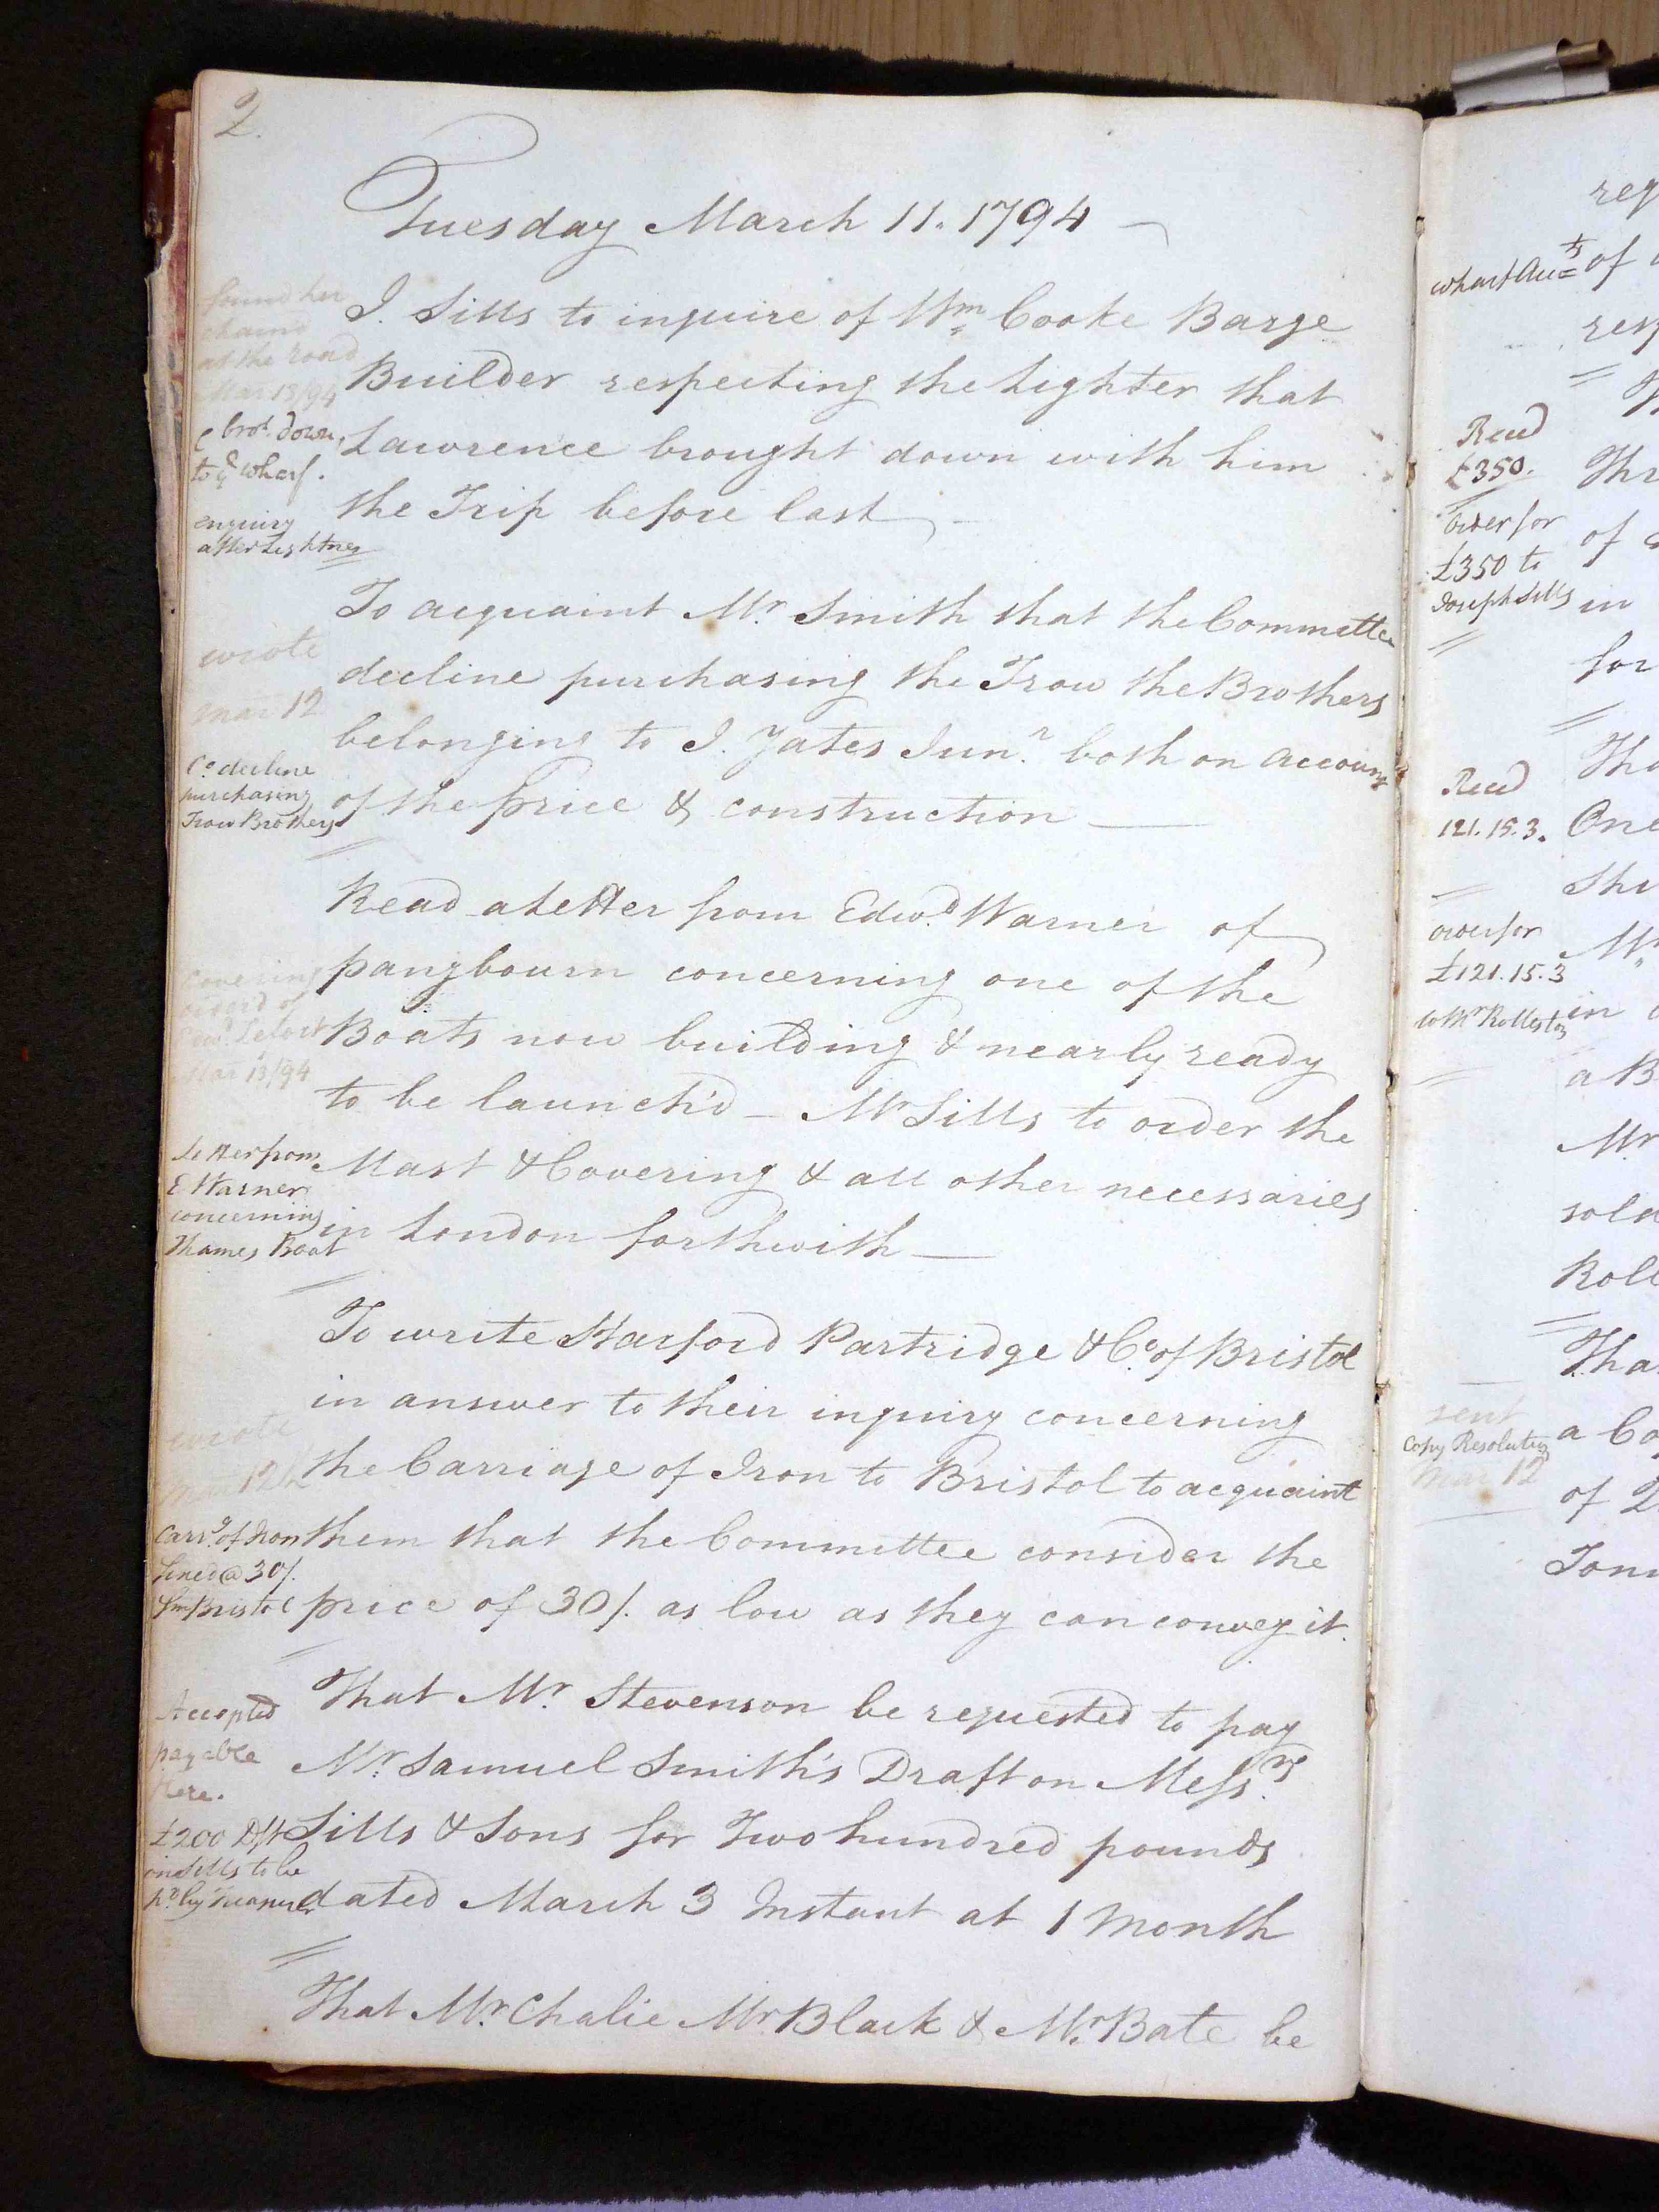 2.
Tuesday March 11. 1794
found her
chaind
at the road
Mar 13/94
& brot. down
to ye Wharf.
enquiry
after Lightner
J. Sills to inquire of Wm. Cooke Barge
Builder respecting the Lighter that
Lawrence brought down with him
the Trip before last
wrote
Mar 12
Co. decline
purchasing
Trow Brothers
To acquaint Mr. Smith that the Committee
decline purchasing the Trow the Brothers
belonging to J. Yates Junr. both on account
of the price & construction
covering
orderd of
Mar 13/94
Letter from
E Warner
concerning
Thames Boat
Read a letter from Edwd. Warner of
pangbourn concerning one of the
Boats now building & nearly ready
to be launch'd - Mr Sills to order the
Mast & Covering & all other necessaries
in London forthwith
wrote
Mar 12
Carrg. of Iron
fined @ 30/.
fm Bristol
To write Harford Partridge & Co. of Bristol
in answer to their inquiry concerning
the Carriage of Iron to Bristol to acquaint
them that the Committee consider the
price of 30/. as low as they can convey it.
Accepted
payable
Here.
£200 Dft
on Sills to be
pd. by Treasurer
That Mr. Stevenson be requested to pay
Mr. Samuel Smith's Draft on Messrs.
Sills & Sons for Two hundred pounds
dated March 3 Instant at 1 Month
That Mr. Chalie Mr Black & Mr. Bate be
wharf Acc
of
Recd
£350.
order for
£350 to
Joseph Sills
of
in
for
Recd
121.15.3.
One
order for
£121.15.3
to Mr Rolleston
Mr
in
a B
Mr
sent
Copy Resolution
Mar 12
a Co
of